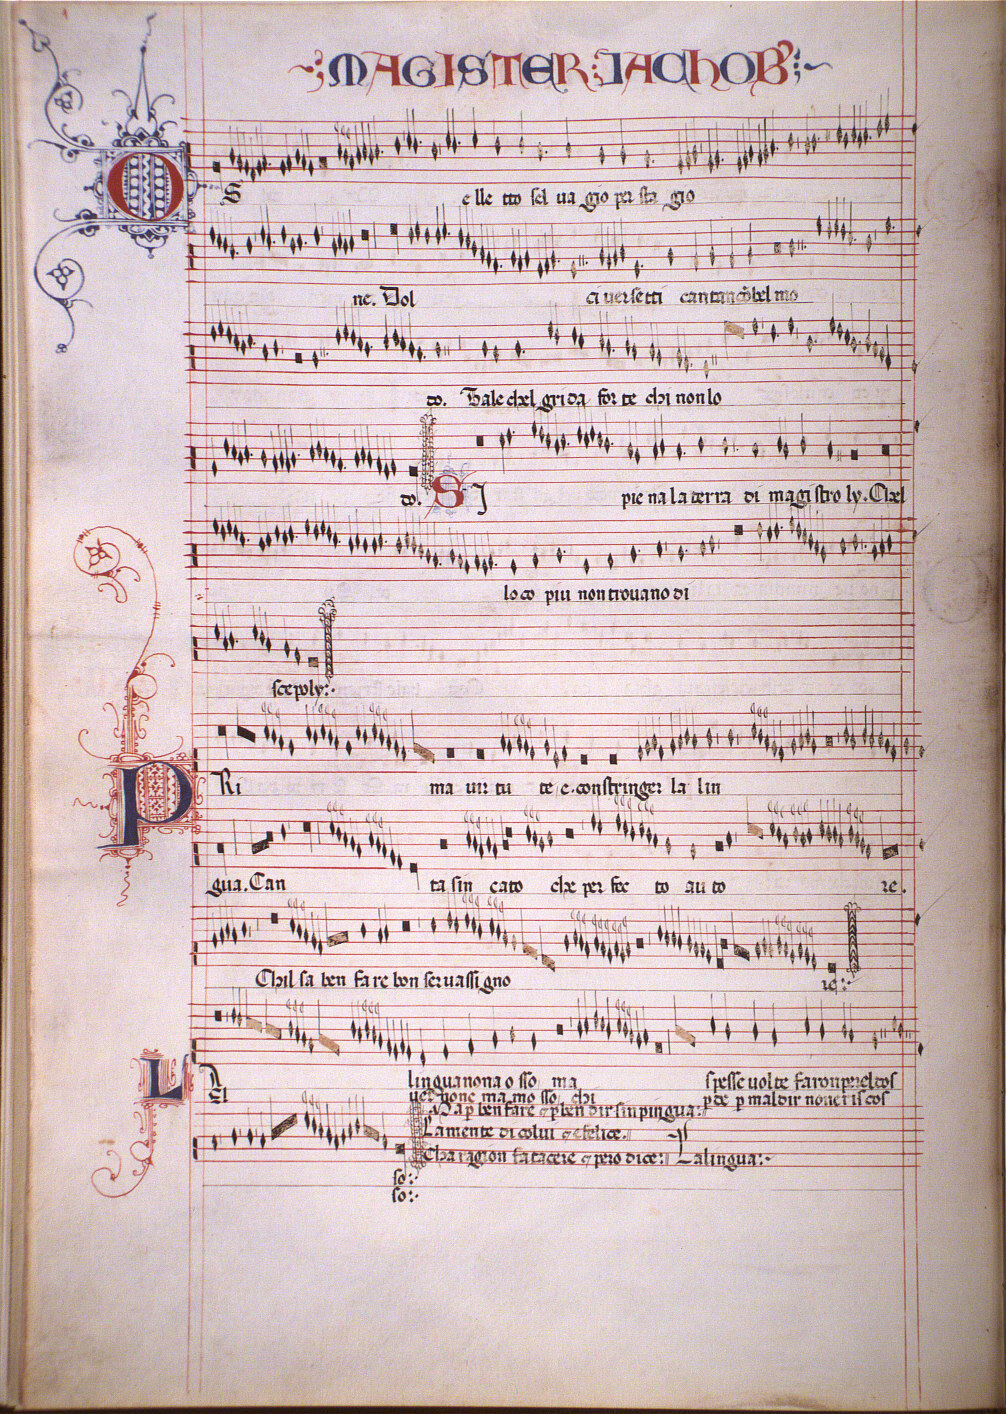 MAGISTER JACHOB
OS e lle tto sel ua gio per sta gio
ne. Dol ci uersetti cantando bel mo
do. Tale chel grida for te chi non lo
do. SJ pie na la terra di magi stro ly. Chel
loco piu non trouano di
scepoly:
PRi ma uir tu te e. constringer la lin
gua. Can ta sin cato che per fec to au to re.
Chil sa ben fare bon ser uassi gno re:
LA lingua nona o sso ma spesse uolte
El ma mo sso chi
Lamente di colui felice.
Cha ragion fa tacere pero dice: La lingua:
so:
so: